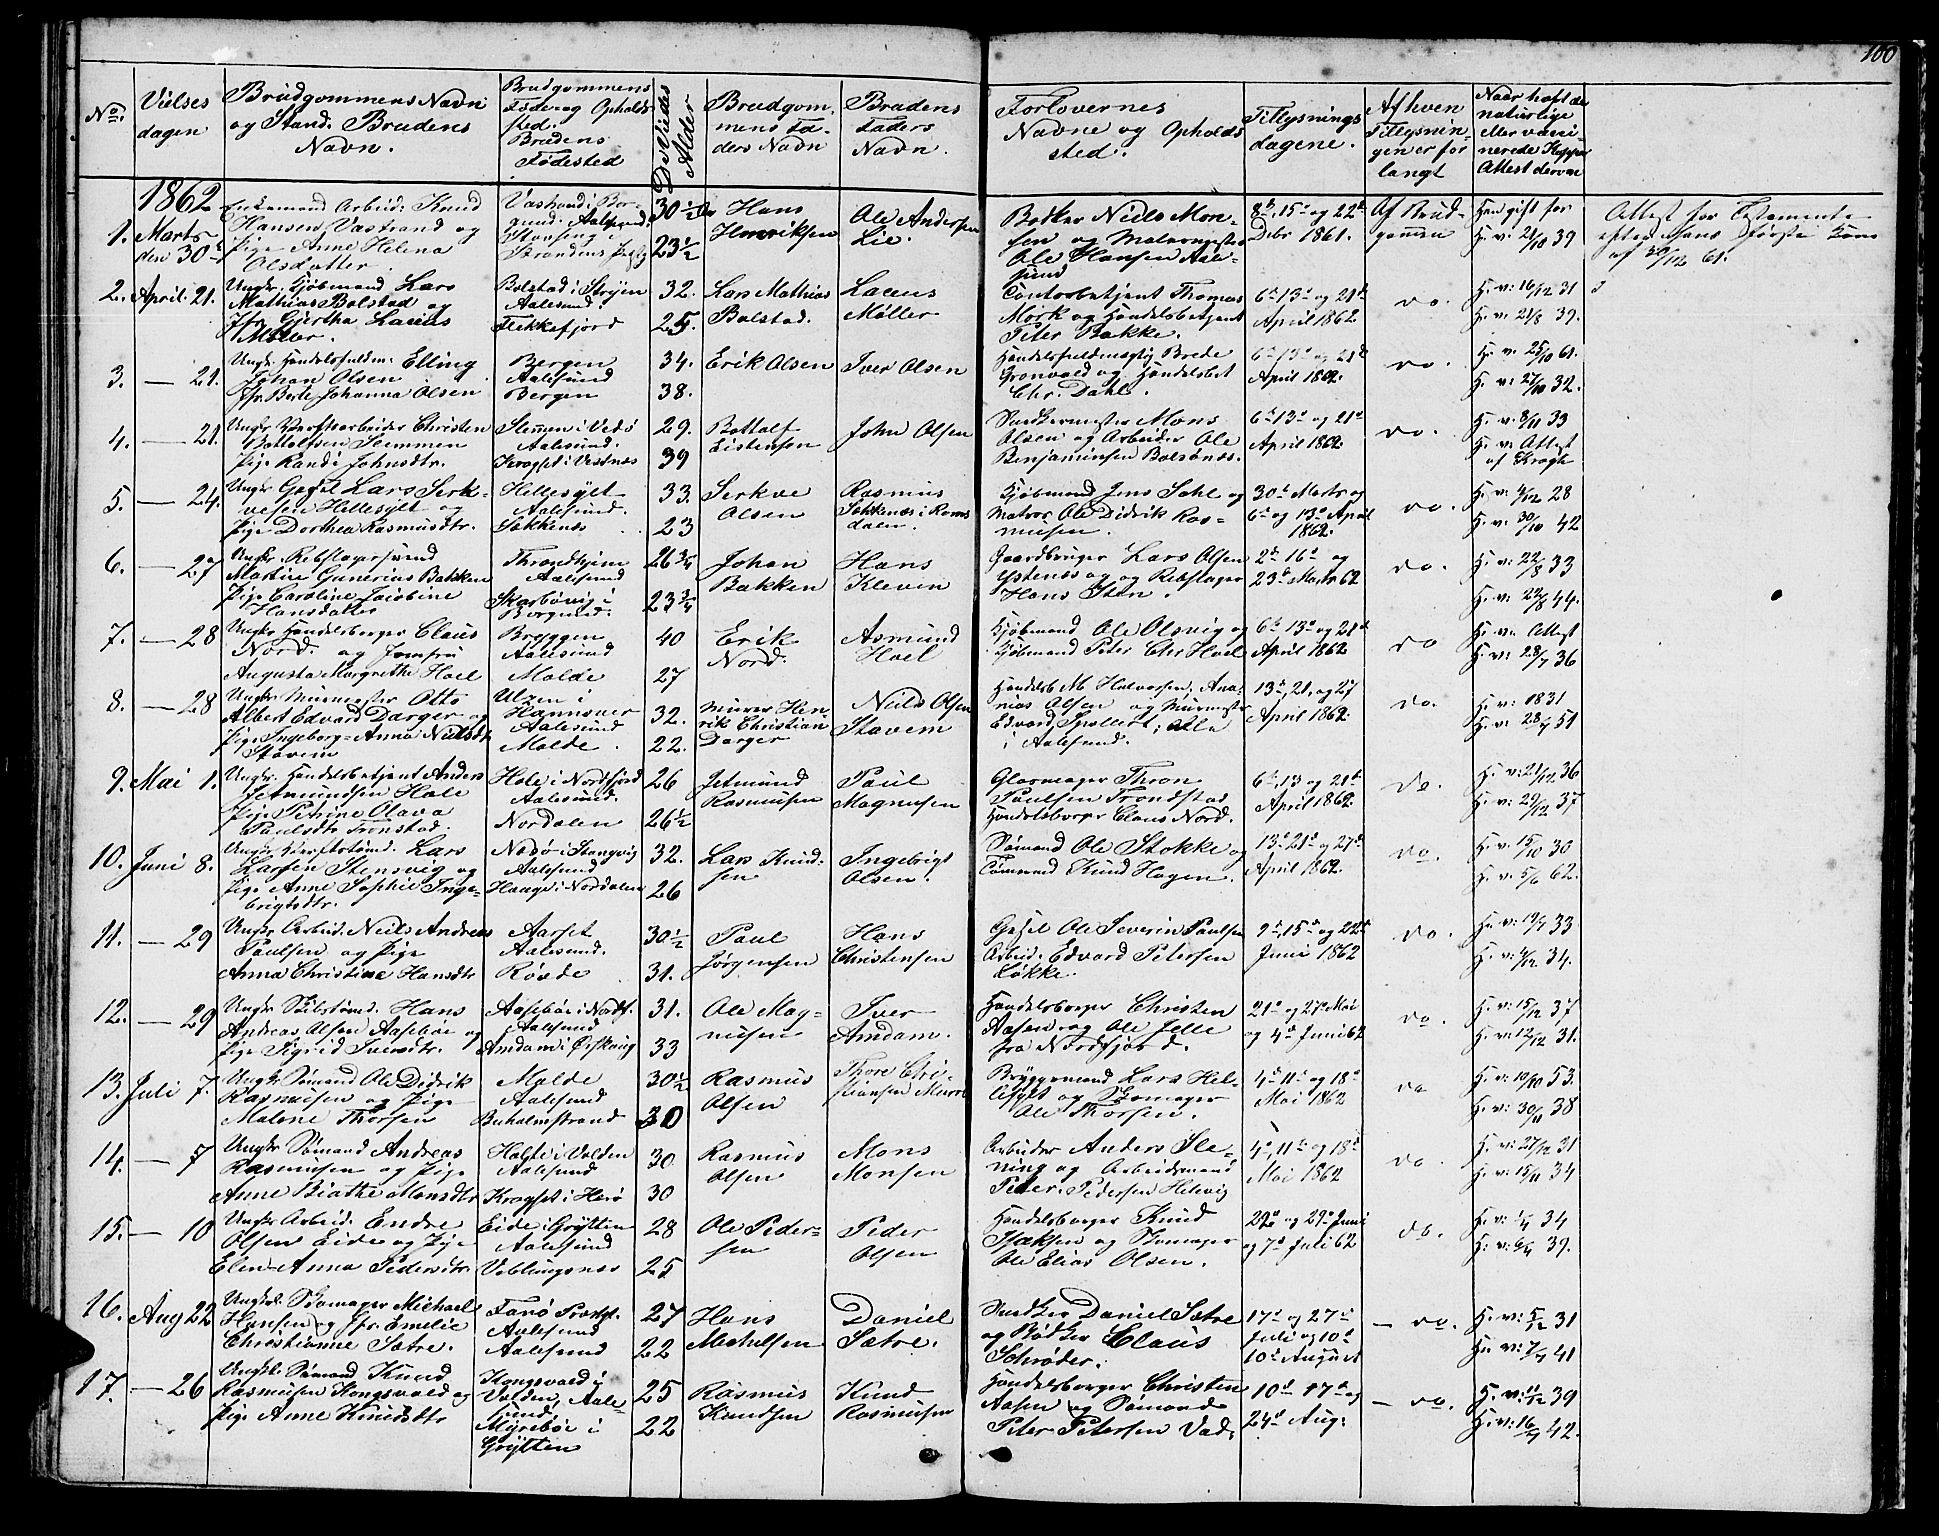 100
No.
Vielses
dagen
Brudgommens Navn
og Stand. Brudens
Navn.
Brudgommens
Føde og Opholds
sted.
Brudens
Fødested
De Viedes
Alder
Brudgom-
mens Fa-
ders Navn
Brudens
Faders
Navn.
Forlovernes
Navne og Opholds
sted.
Tillysnings
dagene.
Af hvem
Tillysnin-
gen er for
langt
Naar haft de
naturlige
eller vacci-
nerede Kopper
Attest derom
1862
1. Marts
den 30te
Enkemand Arbeid: Knud
Hansen Vastrand og
Pige Anne Helena
Olsdatter.
Vastrand i Bor-
gund. Aalesund
Strandens
30½
23½
Hans
Henriksen
Ole Andersen
Lie.
Bødker Niels Mon-
sen og Malermester
Ole Hansen Aale-
sund
8de, 15de og 22de
Debr 1861.
Af Brud-
gommen
Han gift før
H. v. 21/10 39
Attest for Testamente
efter hans første Kone
af 30/12 61.
2. April 21.
Ungkr. Kjøbmand Lars
Mathias Bolstad og
Jfr. Gjertha Laurus
Møller.
Bolstad i Stryen
Aalesund.
Flekkefjord
32.
25.
Lars Mathias
Bolstad.
Laurus
Møller
Contorbetjent Thomas
Mørk og Handels Agent
Peter Bakke.
6te 13de og 21de
April 1862
do.
H. v: 16/12 31
H. v: 21/8 39.
3. — 21.
Ungkr. Handelsfuldm: Elling
Johan Olsen
Jfr. Berte Johanna Olsen
Bergen
Aalesund
Bergen
34.
38.
Erik Olsen
Iver Olsen
Handelsfuldmægtig Brede
Grønvold og Handelsbet
Chr. Dahl.
6te 13de og 21de
April 1862.
do.
H. v. 25/10 61.
H. v: 27/10 32.
4. — 21.
Ungkr. Værftsarbeider Christen
Bottolfsen Slemmen
Pige Randi Johnsdtr.
Slemmen i Vedø
Aalesund.
Kragset i Vestnæs
29.
39
Bottolf
Eistensen
John Olsen
Snedkermester Mons
Olsen og Arbeider Ole
Benjaminsen Bolsønæs.
6te 13de og 21de
April 1862.
do.
H. v. 8/11 33
H. v: Attest
af Krogh
5. — 24.
Ungkr. Gesel Lars Serk-
vesen Hellesylt og
Pige Dorthea Rasmusdtr.
Hellesylt
Aalesund.
Søkkenæs
33.
23
Serkve
Olsen
Rasmus
Søkkenæs i Roms
dalen.
Kjøbmand Jens Dahl og
Matros Ole Didrik Ras-
musen.
30te Marts og
6te og 13de April
1862.
do.
H. v: 4/12 28
H. v. 30/10 42
6. — 27
Ungkr. Rebslagersvend
Martin Gunerius Bakken
Pige Caroline Jacobine
Hansdatter
Throndhjem
Aalesund
Skarbøvig i
Borgund.
26¾
23¾
Johan
Bakken
Hans
Kleven
Gaardbruger Lars Olsen
Ystenæs og og Rebslager
Hans Sten.
2de 16de og
23de Marts 62
do.
H. v: 22/8 33
H. v: 22/8 44.
7. — 28
Ungkr Handelsborger Claus
Nord. og Jomfru
Augusta Margrethe Hoel
Bryggen
Aalesund
Molde
40
27
Erik
Nord.
Asmund
Hoel
Kjøbmand Ole Olsvig og
Kjøbmand Peter Chr Hoel
6te 13de og 21de
April 1862
do
H. v. Attest
H. v: 28/7 36
8. — 28
Ungkr Murmester Otto
Albert Edvard Darger og
Pige Ingeborg Anna Nielsdtr
Stavem
Ulzen i
Hannover
Aalesund
Molde.
32.
22.
Murer Hen
rik Christian
Darger
Niels Olsen
Stavem
Handelsb M Halvorsen, Ana-
nias Olsen og Murmester
Edvard alle
i Aalesund.
13de, 21, og 27
April 1862.
do.
H. v: 1831
H. v: 28/4 51
9. Mai 1.
Ungkr. Handelsbetjent Anders
Jetmundsen Hole
Pige Petrine Olava
Paulsdtr Tronstad.
Hole i Nordfjord
Aalesund.
Nordalen
26
26½
Jetmund
Rasmusen
Paul
Magnusen
Glarmager Thron
Paulsen Trondstad
Handelsborger Claus Nord.
6te, 13 og 21de
April 1862.
do.
H. v. 21/12 36
H. v. 29/12 37
10. Juni 8.
Ungkr Værftstømd. Lars
Larsen Stensvig og
Pige Anne Sophie Inge-
brigtsdtr.
Nesø i Stangvig
Aalesund
Hauge i Nordalen
32.
26
Lars Knud-
sen
Ingebrigt
Olsen.
Sømand Ole Stokke og
Tømmrmd Knud Hagen.
13de 21de og 27de
April 1862.
do.
H. v. 15/10 30
H. v: 5/6 62.
11. — 29
Ungkr Arbeid. Niels Andreas
Paulsen og Pige
Anna Christine Hansdtr
Aarset
Aalesund.
Røvde
30½
31.
Paul
Jørgensen
Hans
Christensen
Gesel Ole Severin Paulsen
Arbeid. Edvard Petersen
Løkke.
9de, 15de og 22de
Juni 1862
do.
H. v. 19/7 33
H. v: 4/12 34.
12. — 29
Ungkr Hans
Andreas Olsen Aasebøe og
Pige Sigrid Iversdtr.
Aasebøe i Nordf.
Aalesund
Amdam i Ørskoug
31.
33
Ole Mag-
nusen
Iver
Amdam.
Handelsborger Christen
Aasen og Ole Jelle
fra Nordfjord.
21de og 27de Mai
og 4de Juni 62
do.
H. v: 15/12 37
H. v: 12/12 31.
13. Juli 7.
Ungkr Sømand Ole Didrik
Rasmusen og Pige
Malene Thorsen
Molde
Aalesund
Buholmstrand
30½
30
Rasmus
Olsen
Thore Chri-
stiansen
Bryggemand Lars Hel-
lesylt og Skomager
Ole Thorsen.
4de 11de og 18de
Mai 1862
do
H. v: 10/10 53.
H. v: 30/11 38
14. — 7
Ungkr Sømand Andreas
Rasmusen og Pige
Anne Biathe Monsdtr
Holte i Volden
Aalesund
Kragset i Herø
30
30
Rasmus
Olsen
Mons
Monsen
Arbeider Anders Sle-
ning og Arbeidsmand
Peter Pedersen Helevig
4de, 11de og 18de
Mai 1862
do.
H. v: 27/12 31
H. v: 15/11 34
15. — 10
Ungkr Arbeid. Endre
Olsen Eide og Pige
Elen Anna Pedersdtr.
Eide i Grytten
Aalesund
Veblungsnæs
28
25
Ole Peder-
sen
Peder
Olsen
Handelsborger Knud
Isaksen og Skomager
Ole Elias Olsen.
22de og 29de Juni
og 7de Juli 62
do.
H. v: 1/4 34
H. v: 6/4 39.
16. Aug 22
Ungkr. Skomager Michael
Hansen og Jfr. Emelie
Christianne Sætre.
Farø
Aalesund
Aalesund
27
22
Hans
Michelsen
Daniel
Sætre.
Snedker Daniel Sætre
og Bødker Claus
Schrøder.
17de og 27de
Juli og 10de
10de August
— do.
H. v: 5/12 31
H. v: 7/7 41
17. — 26
Ungkr. Sømand Knud
Rasmusen Kongsvold og
Pige Anne Knudsdtr
Kongsvold i
Volden, Aale-
sund
Myrebøe i
Grytten
25
22
Rasmus
Knudsen
Knud
Rasmusen
Handelsborger Christen
Aasen og Sømand
Peter Petersen Vad.
10de 17de og
24de Aug:
— do.
H. v: 11/12 39
H. v: 16/7 42.